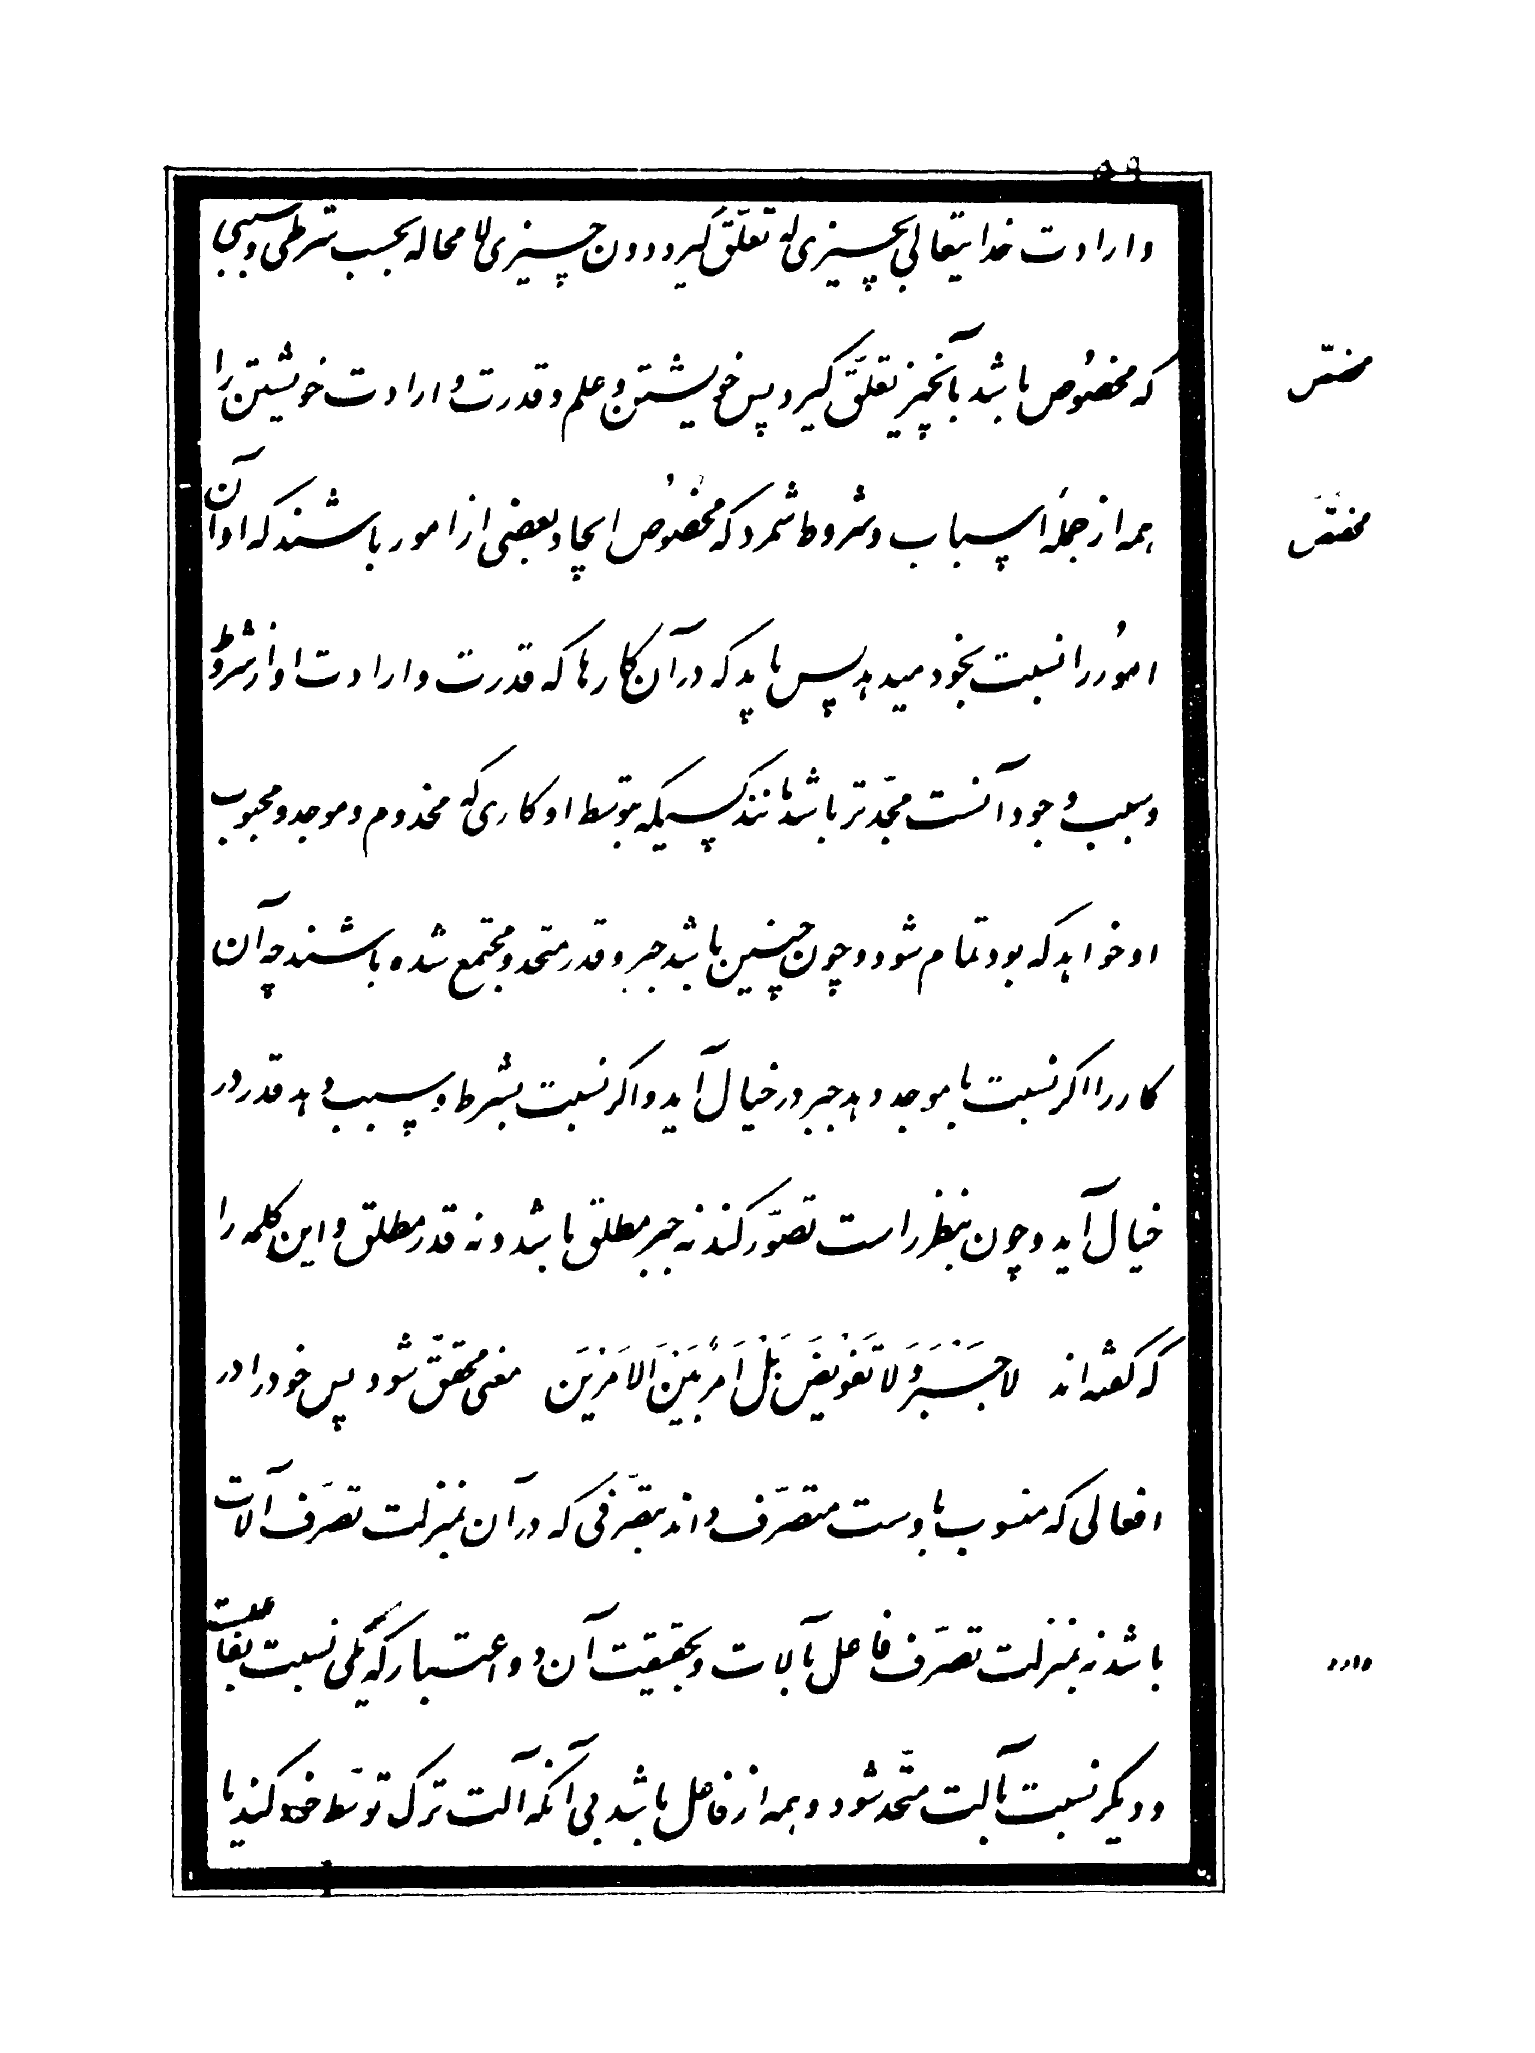 ۵۹
و ارادت خدایتعالی بچیزی که تعلّق گیرد دون چیزی لا محاله بحسب شرطی و سببی
که مخصُوص باشد بآنچیز تعلّق گیرد پس خویشتن و علم و قدرت و ارادت خویشتن را
مختصّ
همه از جملهٔ اسباب و شروط شمرد که مخصُوص ایجاد بعضی از امور باشند که او آن
مختصّ
امُور را نسبت بخود میدهد پس باید که در آن کارها که قدرت و ارادت او از شروط
و سبب وجود آنست مجّدتر باشد مانند کسیکه بتوسط او کاری که مخدوم و موجد و محبوب
او خواهد که بود تمام شود و چون چنین باشد جبر و قدر متحد و مجتمع شده باشند چه آن
کار را اگر نسبت با موجد دهد جبر در خیال آید و اگر نسبت بشرط و سبب دهد قدر در
خیال آید و چون بنظر راست تصوّر کند نه جبر مطلق باشد و نه قدر مطلق و این کلمه را
که گفته‌اند لا جَبْرَ وَ لا تَفْویضَ بَلْ اَمرٌ بَیْنَ الاَمْرَیْن معنی محقّق شود پس خود را در
افعالی که منسوب باوست متصرّف داند بتصرّفی که در آن بمنزلت تصرّف آلات
باشد نه بمنزلت تصرّف فاعل بآلات و بحقیقت آن دو اعتبار که یکی نسبت بفاعلست
دارد
و دیگر نسبت بآلت متّحد شود و همه از فاعل باشد بی آنکه آلت ترک توسّط خود کند یا